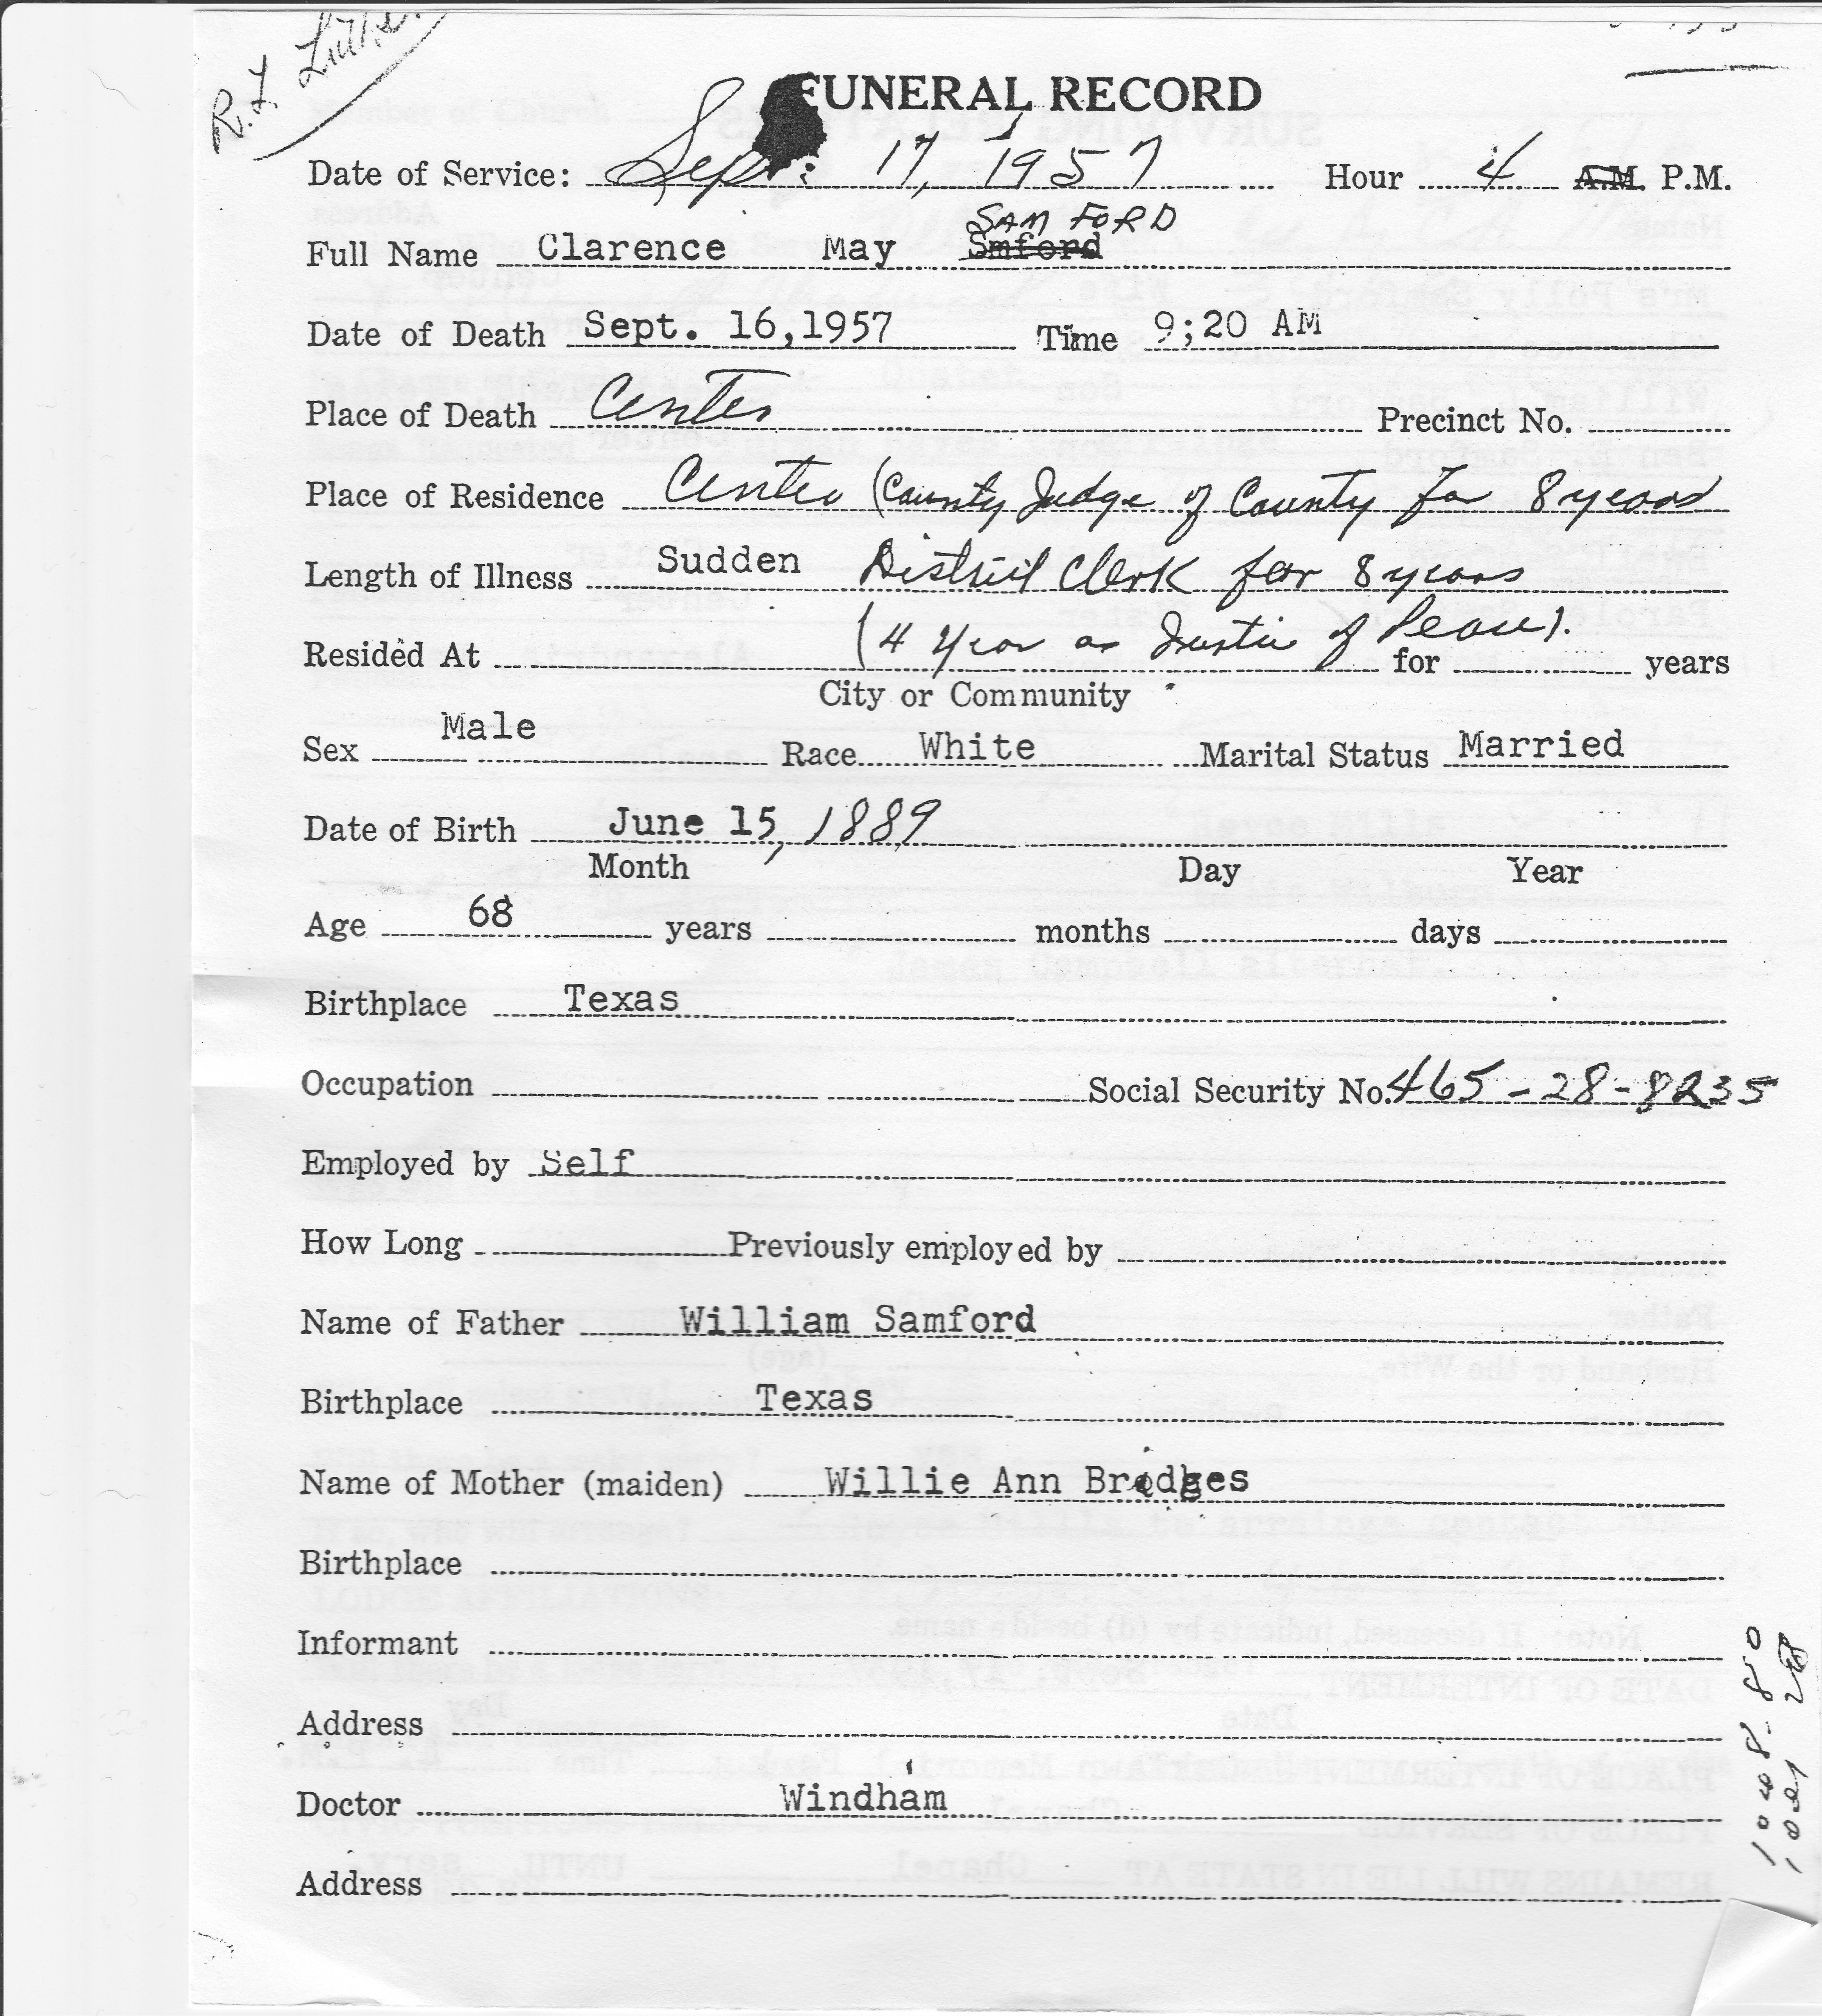 R. L.
FUNERAL RECORD
Date of Service: Sept: 17, 1957 Hour 4 A.M. P.M.
SAM FORD
Full Name Clarence May Smford
Date of Death Sept. 16,1957 Time 9;20 AM
Place of Death Center Precinct No.
Place of Residence Center (County Judge of County for 8 years
Length of Illness Sudden District Clerk for 8 years
(4 year as Justice of Peace).
Resided At for years
City or Community
Sex Male Race White Marital Status Married
Date of Birth June 15, 1889
Month Day Year
Age 68 years months days
Birthplace Texas
Occupation Social Security No. 465-28-8235
Employed by Self
How Long Previously employed by
Name of Father William Samford
Birthplace Texas
Name of Mother (maiden) Willie Ann Bridges
Birthplace
Informant
Address
Doctor Windham
Address